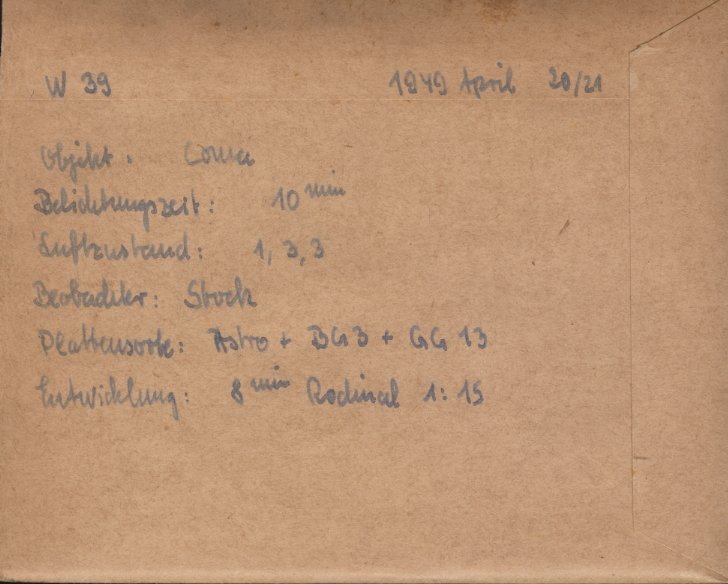 W 39 1949 April 20/21
Objekt: Coma
Belichtungszeit: 10 min
Luftzustand: 1, 3, 3
Beobachter: Stock
Plattensorte: Astro + BG3 + GG 13
Entwicklung: 8 min Rodinal 1:15